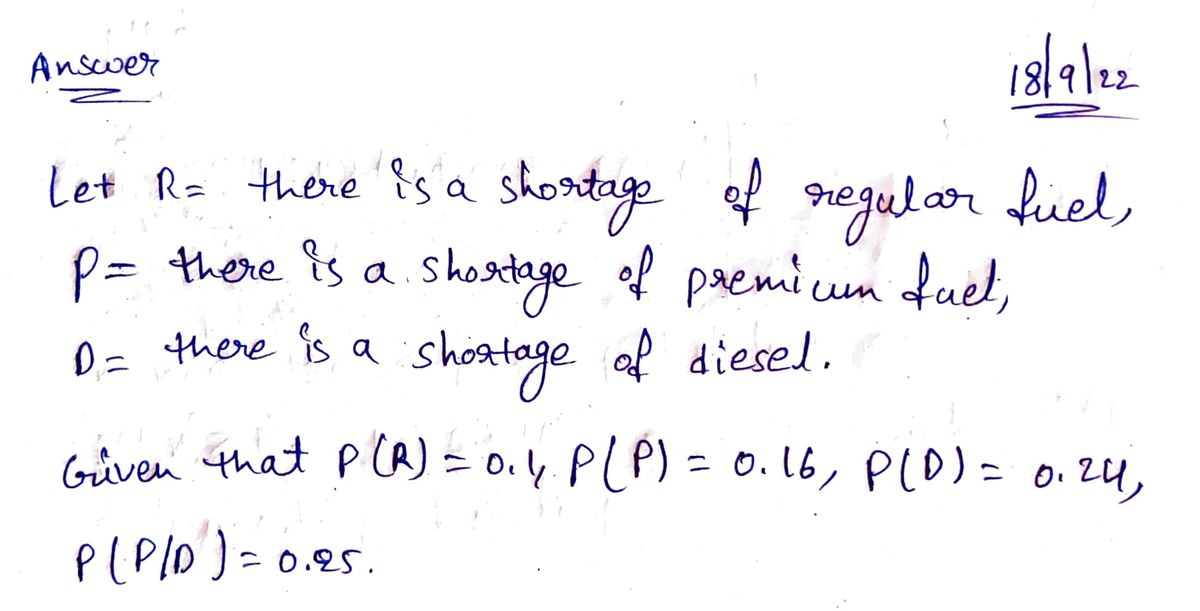 Answer
18/9/22
Let R= there is a shortage of regular fuel,
P= there is a shortage of premium fuel,
D= there is a shortage of diesel.
Given that P(R)=0.1, P(P) = 0.16, P(D) = 0.24,
P(P/D)=0.25.